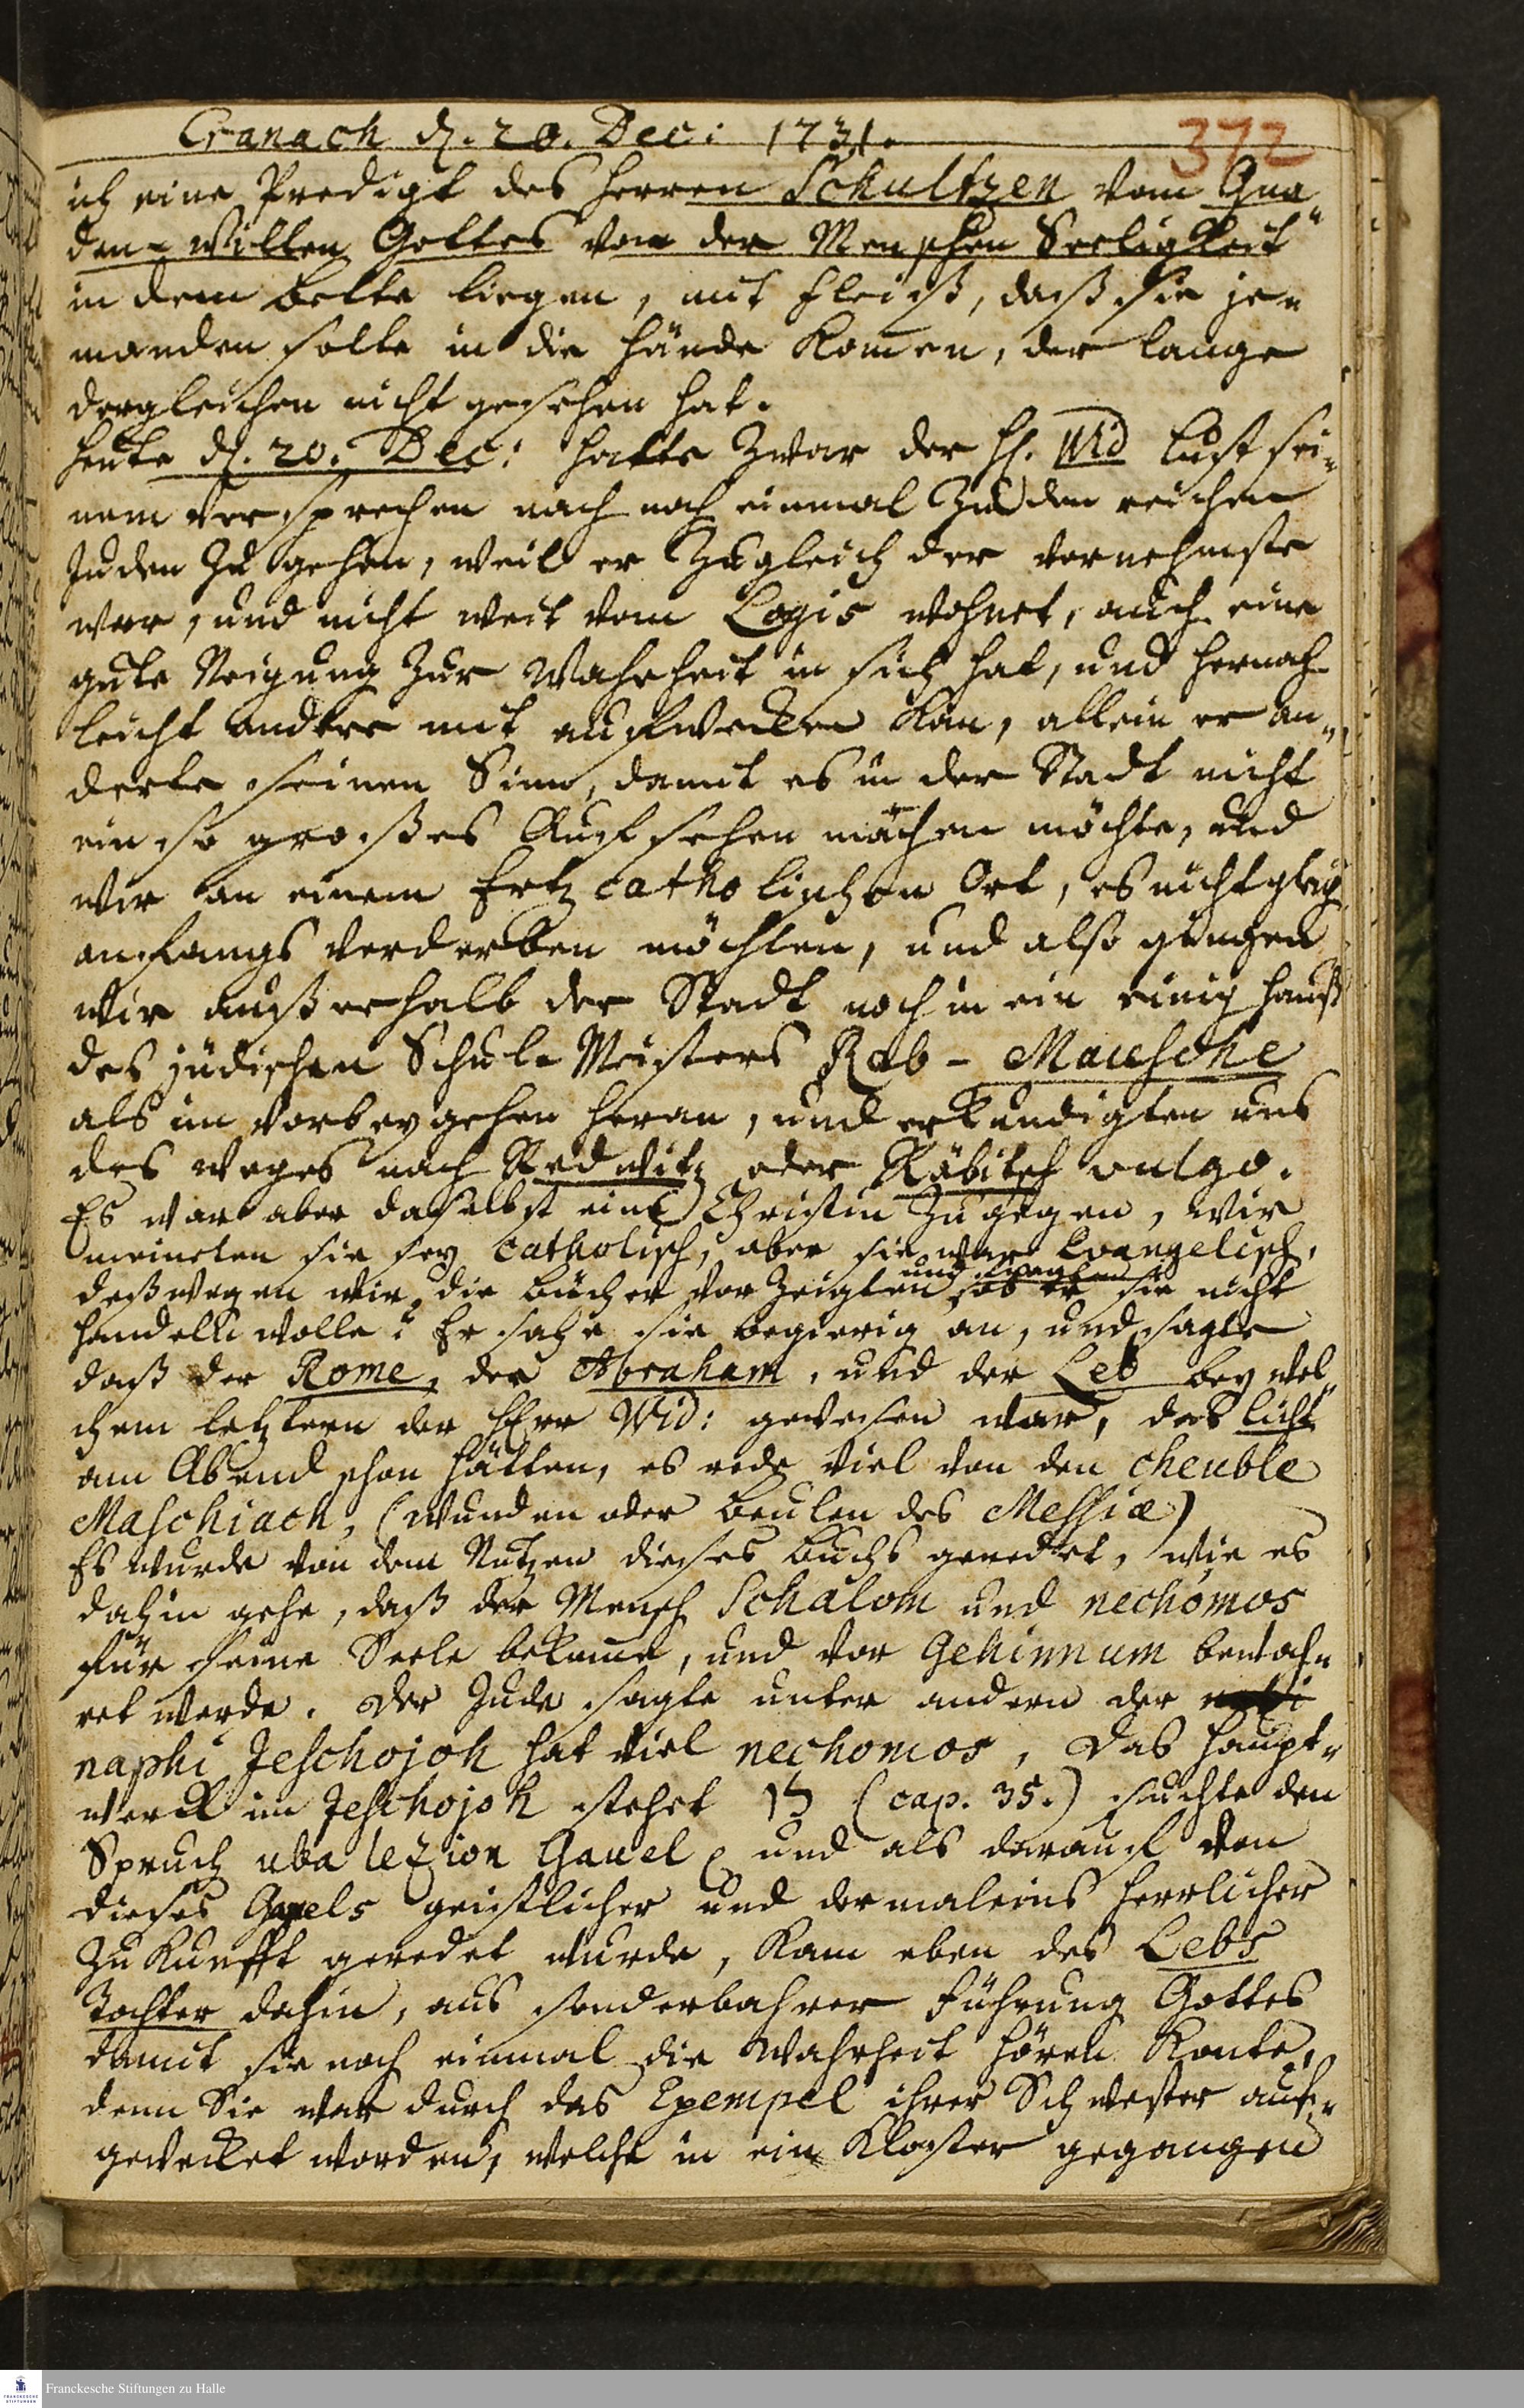 Cranach d. 20. Dec: 1731.
372
ich eine Predigt des Herren Schultzen vom Gna"
den-Willen Gottes von der Menschen Seeligkeit"
in dem Bette liegen, mit Fleiß, daß sie je"
manden solte in die Hände kom̅en, der lange
dergleichen nicht gesehen hat.
Heute d. 20. Dec: hatte zwar der H. Wid Lust sei"
nem Versprechen nach noch einmal zu den reichen
Juden zu gehen, weil er zugleich der vornehmste
war, und nicht weit vom Logis wohnet, auch eine
gute Neigung zur Wahrheit in sich hat, und hernach
leicht andere mit aufwecken kan, allein er än"
derte seinen Sinn, damit es in der Stadt nicht
ein so großes Aufsehen machen möchte, und
wir an einem Ertz catholischen Ort, es nicht gleich
anfangs verderben möchten, und also gingen
wir außerhalb der Stadt noch in ein einig Hauß
des jüdischen Schule Meisters Rab-Mausche
als im vorbeygehen heran, und erkundigten uns
des Weges nach Redwitz oder Räbitsch vulgo.
Es war aber daselbst eine Christin zugegen, wir
meineten sie sey Catholisch, aber sie war Evangelisch,
deßwegen wir die Bücher vorzeigten und fragten ob er sie nicht
handeln wolle? Er sahe sie begierig an, und sagte
daß der Rome, der Abraham, und der Leb bey wel"
chem letztern der Herr Wid: gewesen war, das Licht
am Abend schon hätten, es rede viel von den cheuble
Maschiach, (Wunden oder Beulen des Messiæ)
Es wurde von dem Nutzen dieses Buchs geredet, wie es
dahin gehe, daß der Mensch Schalom und nechomos
für seine Seele bekom̅e, und vor Gehinnum bewah"
ret werde. Der Jude sagte unter andern der
naphi Jeschojoh hat viel nechomos, Das Haupt"
werck im Jeschojoh stehet לה (cap. 35.) suchte den
Spruch uba leZion Gauel, und als darauf von
dieses Gauels geistlicher und dermaleins herrlicher
Zukunfft geredet wurde, kam eben des Lebs
Tochter dahin, aus sonderbahrer Führung Gottes
damit sie noch einmal die Wahrheit hören konte,
denn Sie war durch das Exempel ihrer Schwester auf"
gewecket worden, welche in ein Kloster gegangen
Franckesche Stiftungen zu Halle